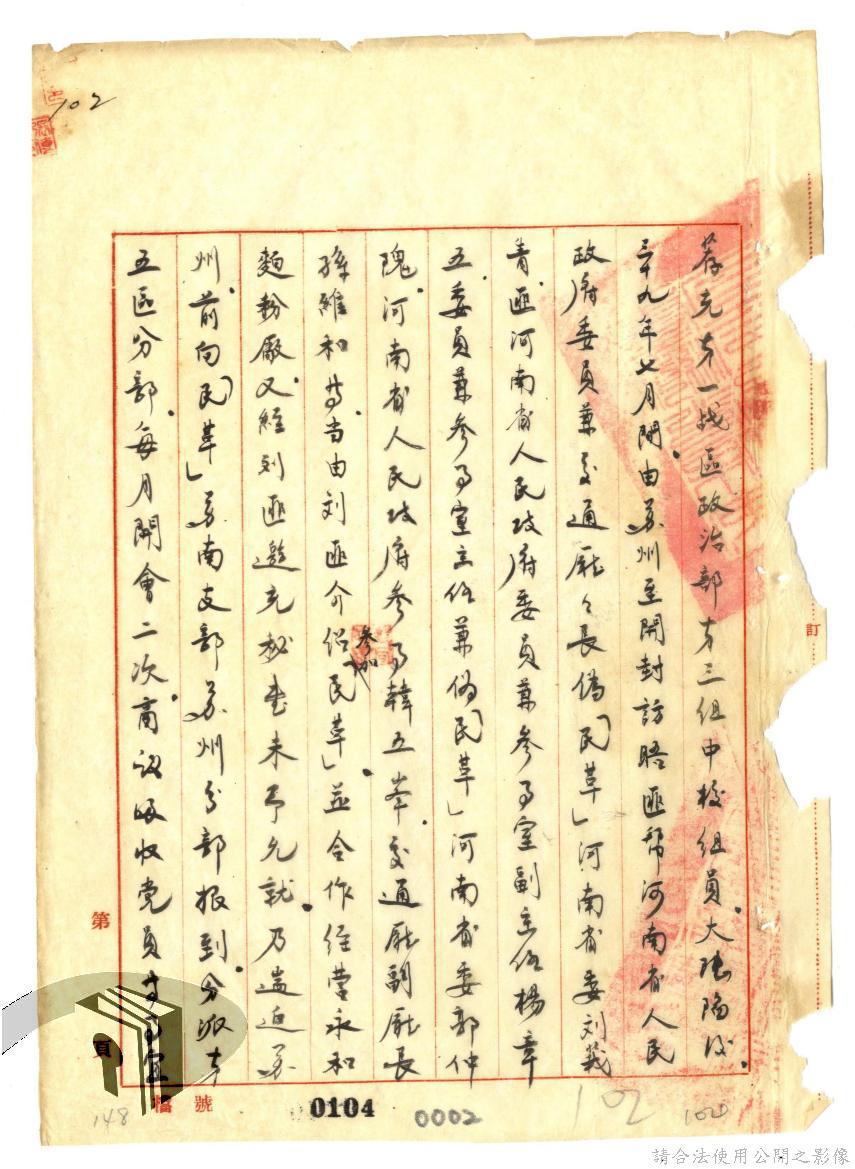 102
荐充㐧一战區政治部㐧三组中校组員。大陸陷後。
三十九年七月間。由蘇州至開封訪晤匪帮河南省人民
政府委員兼交通廳々長偽「民革」河南省委刘莪
青。匪河南省人民政府委員兼参事室副主任楊章
五。委員兼参事室主任兼偽「民革」河南省委郭仲
隗。河南省人民政府参事韓五峯。交通廳副廳長
孫維和等。当由刘匪介绍参加「民革」。並合作经营永和
麵粉廠。又經刘匪邀充秘書未予允就。乃遄返蘇
州。前向「民革」蘇南支部蘇州分部报到。分派㐧
五區分部。每月開會二次。商討吸收党員等事宜
訂
第
頁
檔
號
0104
0002
102
100
148
請合法使用公開之影像